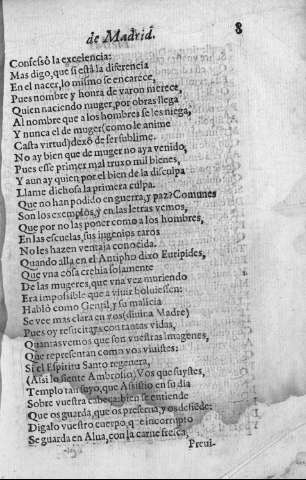 de Madrid. 8
Confessò la excelencia:
Mas digo, que si està la diferencia
En el nacer, lo mismo se encarece,
Pues nombre y honra de varon merece,
Quien naciendo muger, por obras llega
Al nombre que a los hombres se les niega,
Y nunca el de muger (como le anime
Casta virtud) dexò de ser sublime.
No ay bien que de muger no aya venido,
Pues esse primer mal truxo mil bienes,
Y aun ay quien por el bien de la disculpa
Llame dichosa la primera culpa.
Que no han podido en guerra, y paz? Comunes
Son los exemplos, y en las letras vemos,
Que por no las poner como a los hombres,
En las escuelas, sus ingenios raros
No les hazen ventaja conocida.
Quando alla en el Antipho dixo Euripides,
Que vna cosa crehia solamente
De las mugeres, que vna vez muriendo
Era impossible que a viuir boluiessen:
Habló como Gentil, y su malicia
Se vee mas clara en vos (diuina Madre)
Pues oy resucitays con tantas vidas,
Quantas vemos que son vuestras imagenes,
Que representan como vos viuistes:
Si el Espiritu Santo regenera,
(Assi lo siente Ambrosio) Vos que fuystes,
Templo tan suyo, que Assistio en su dia
Sobre vuestra cabeça: bien se entiende
Que os guarda, que os preserua, y os defiẽde:
Digalo vuestro cuerpo, que incorrupto
Se guarda en Alua, con la carne fresca,
Preui-